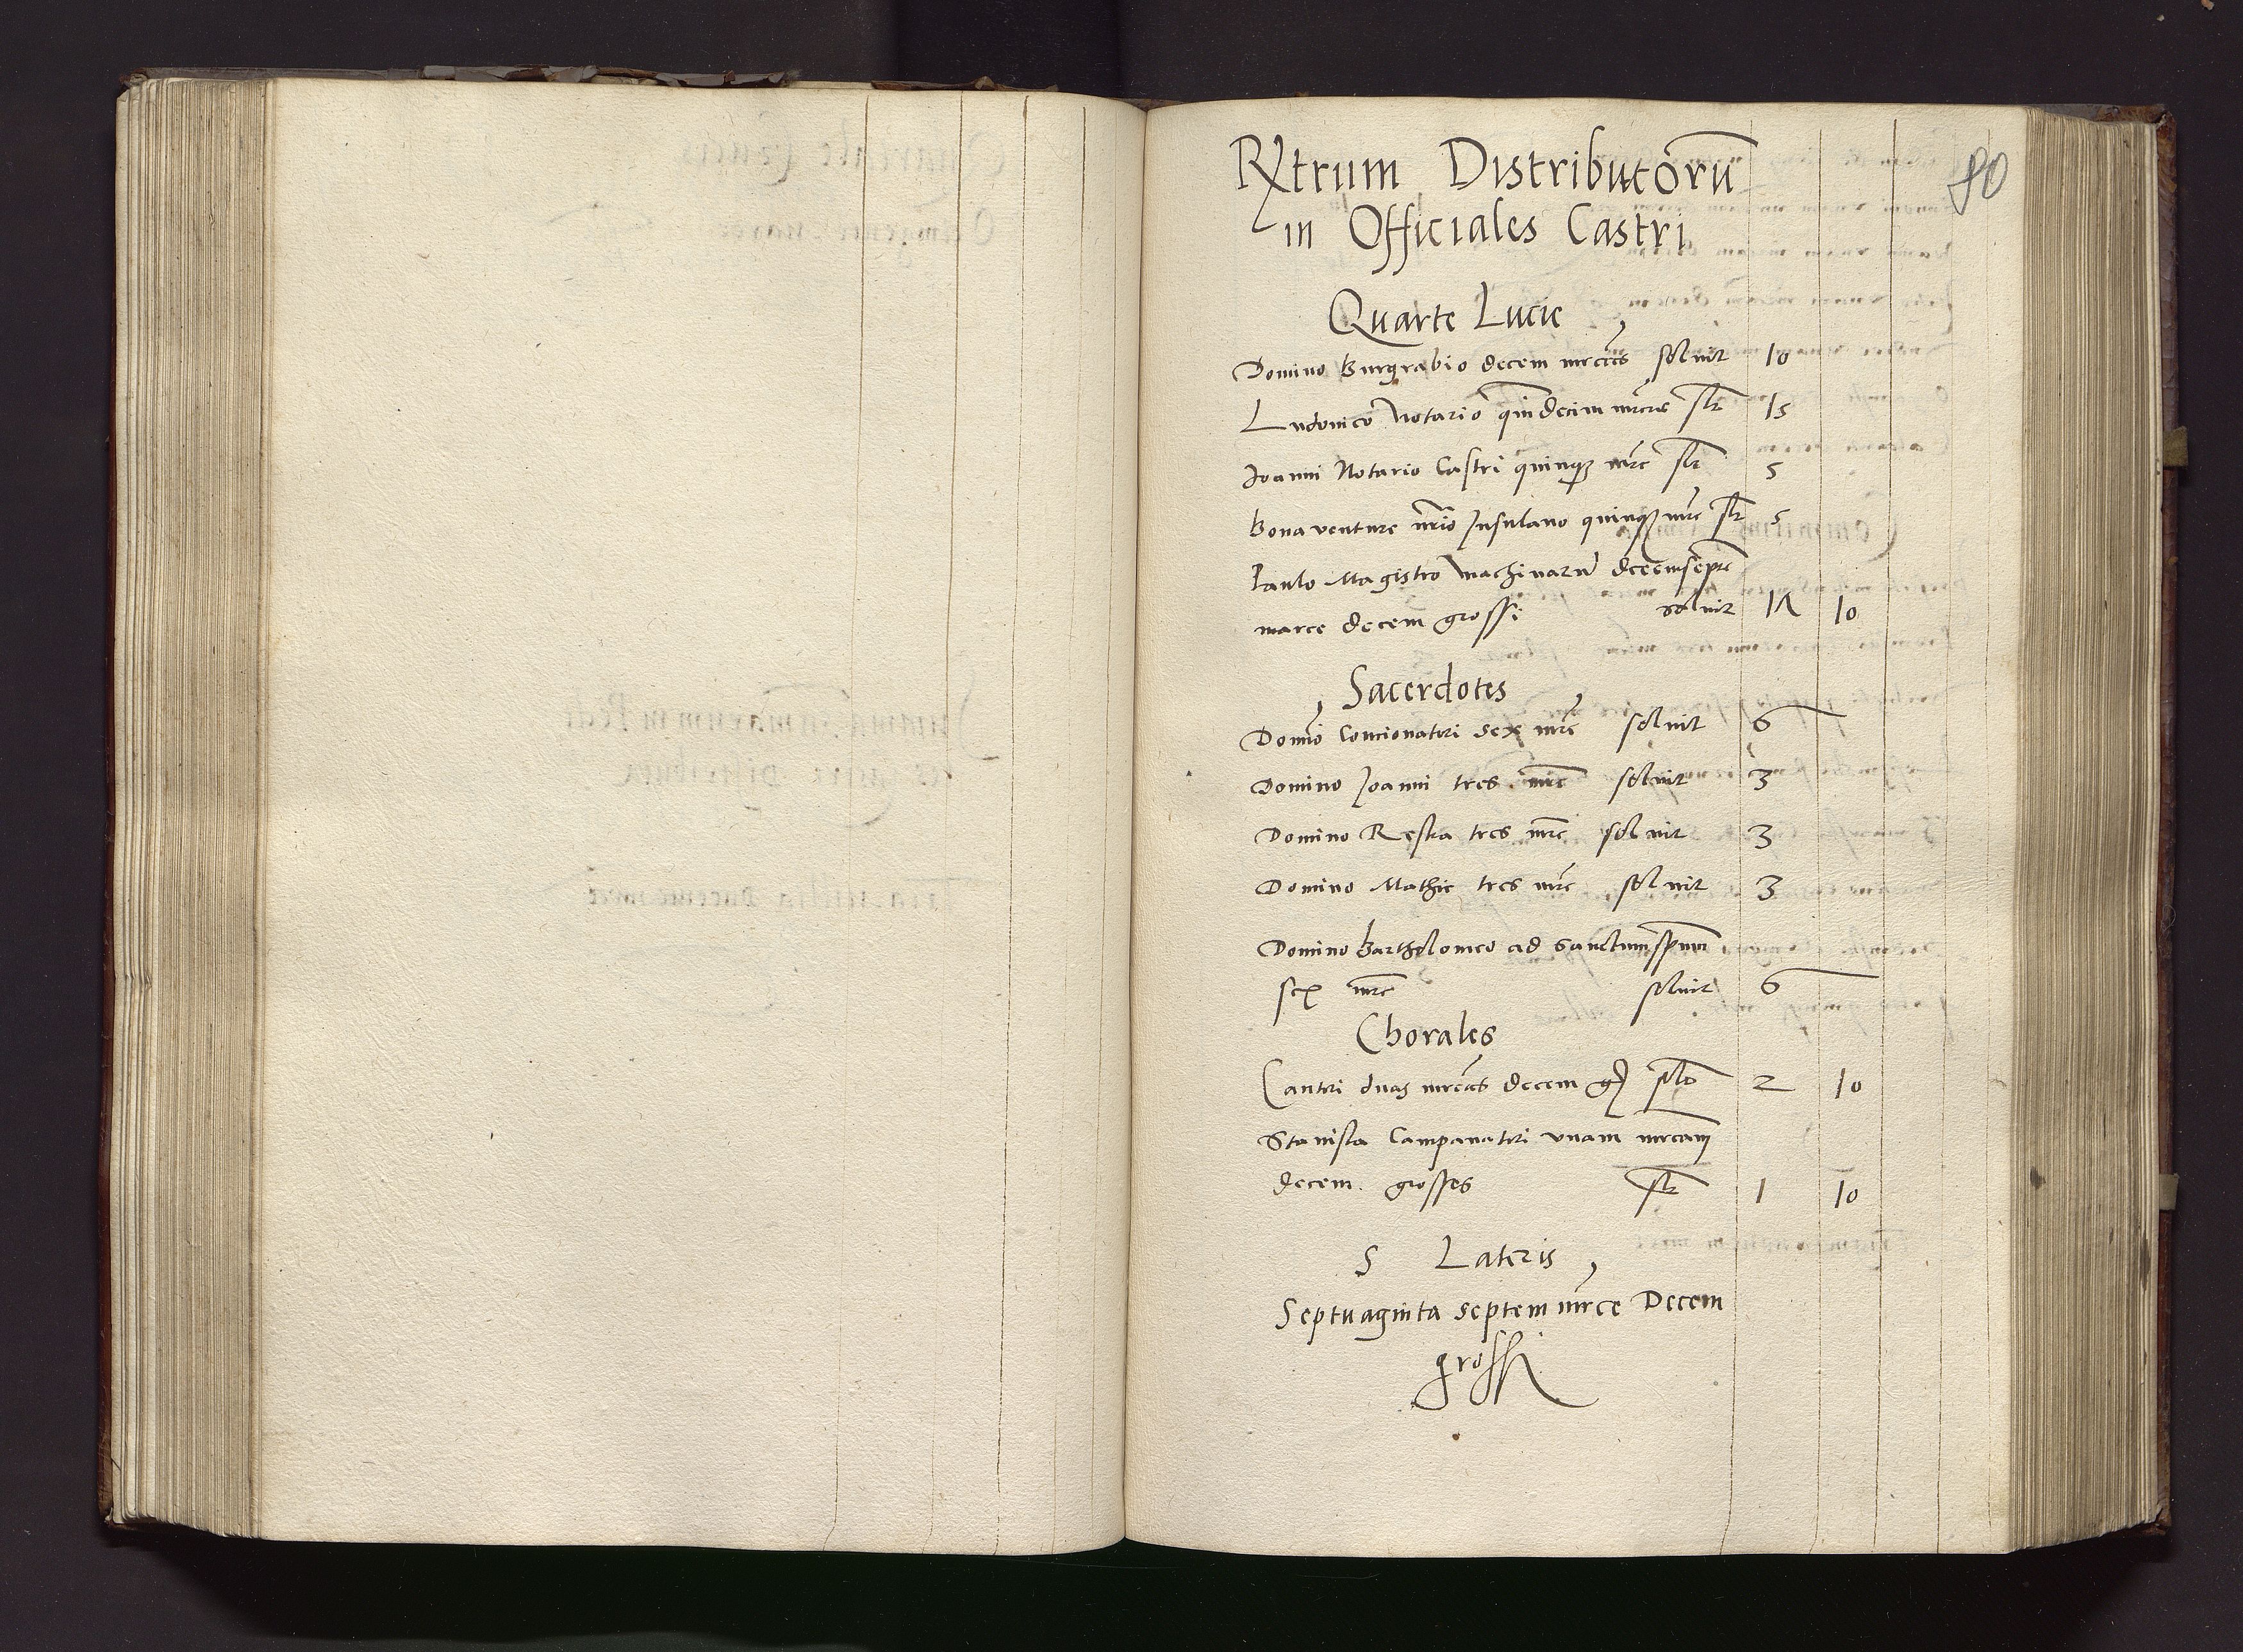 80
Rxtrum Distributorū
in Officiales Castri
Quarte Lucie
Domino Burgrabio decem mrcas soluit 10
Ludouico Notario quindecim mrcas slt 15
Joanni Notario Castri quinqz mrc slt 5
Bonaventure nrio Insulano quinqz mrc slt 5
Paulo Magistro Machinarū decemsepte
marce decem grossi soluit 17 10
Sacerdotes
Domio Concionatori sex mrc soluit 6
Domino Joanni tres mrc soluit 3
Domino Restka tres mrc soluit 3
Domino Mathie tres mrc soluit 3
Domino Bartholomeo ad Sanctum spum
sex mrc soluit 6
Chorales
Cantori duas mrcas decem g slt 2 10
Stanisla Campanatori vnam mrcam
decem grosses slt 1 10
S Lateris
Septuaginta septem mrce Decem
grossi